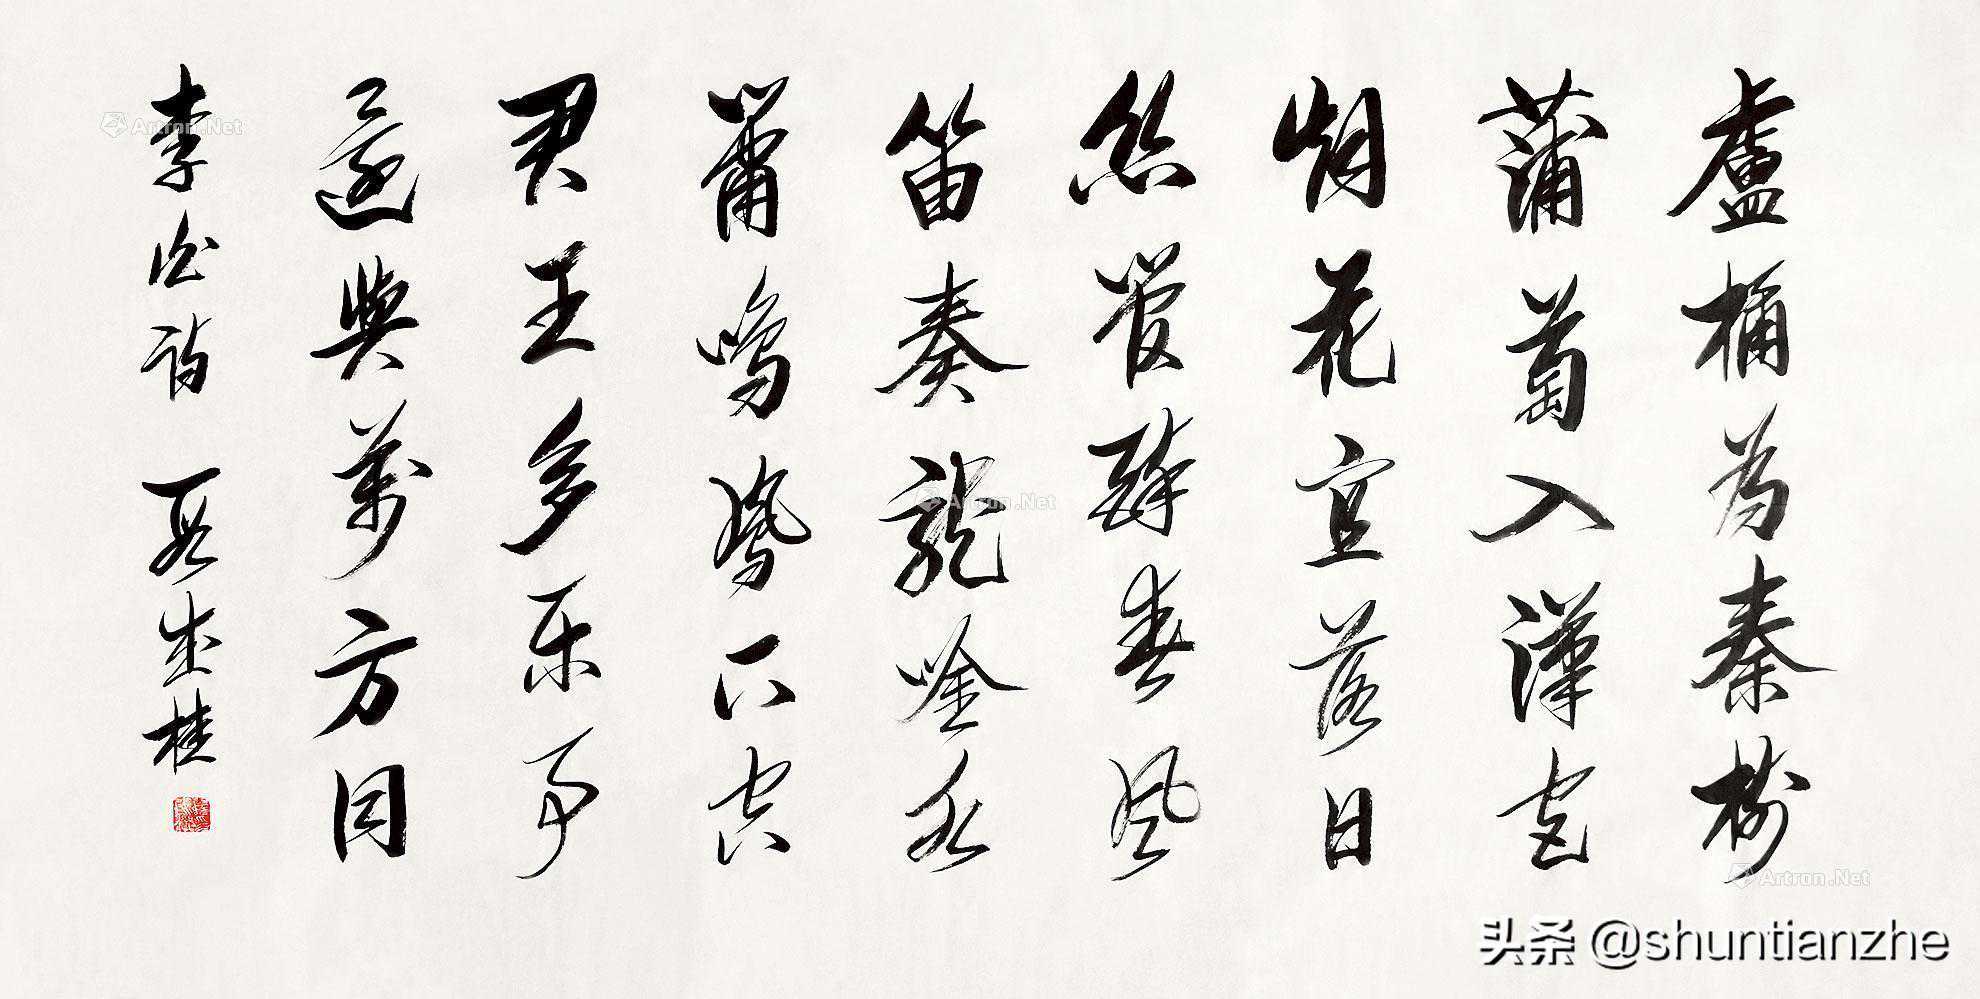 盧橘为秦樹
蒲萄入漢宫
烟花宜落日
丝管醉春风
笛奏龍唫水
簫鳴鳳下空
君王多乐事
還與萬方同
李白詩 段成桂
Artron.Net
Artron.Net
Artron.Net
头条 @shuntianzhe